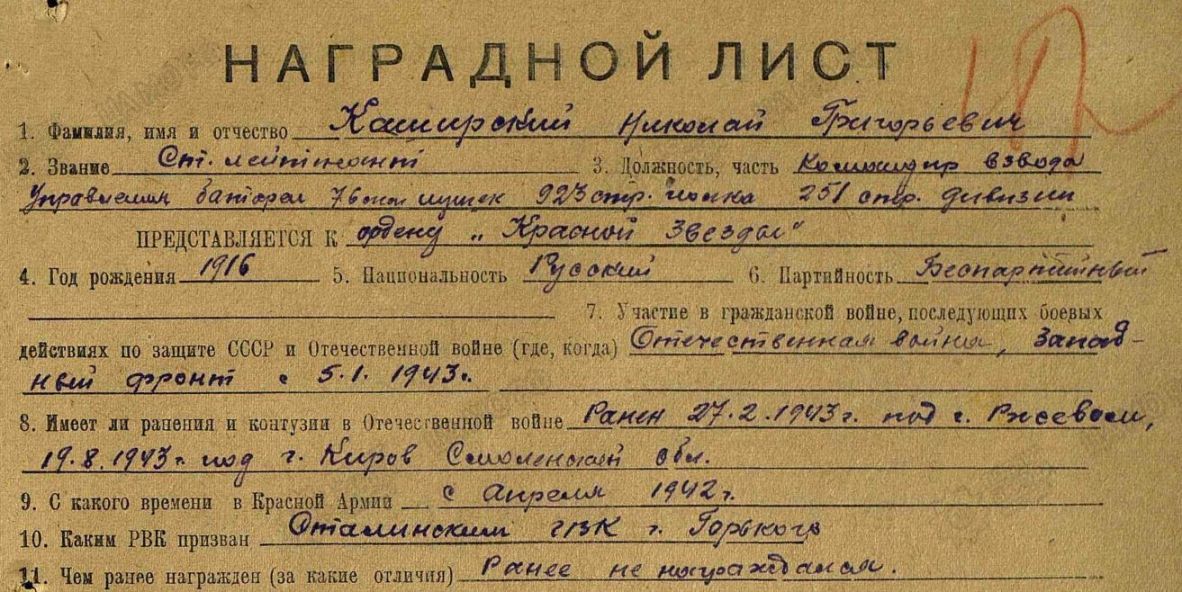 НАГРАДНОЙ ЛИСТ
1. Фамилия, имя и отчество Каширский Николай Григорьевич
2. Звание Ст. лейтенант 3. Должность, часть Командир взвода
Управления батареи 76 мм пушек 923 стр. полка 251 стр. дивизии
ПРЕДСТАВЛЯЕТСЯ К ордену „Красной Звезды"
4. Год рождения 1916 5. Национальность Русский 6. Партийность Беспартийный
7. Участие в гражданской войне, последующих боевых
действиях по защите СССР и Отечественной войне (где, когда) Отечественная война, Запад-
ный фронт с 5.1.1943г.
8. Имеет ли ранения и контузии в Отечественной войне Ранен 27.2.1943г. под г. Ржевом,
19.8.1943г. под г. Киров Смоленской обл.
9. С какого времени в Красной Армии с Апреля 1942г.
10. Каким РВК призван Сталинским ГВК г. Горького
11. Чем ранее награжден (за какие отличия) Ранее не награждался.